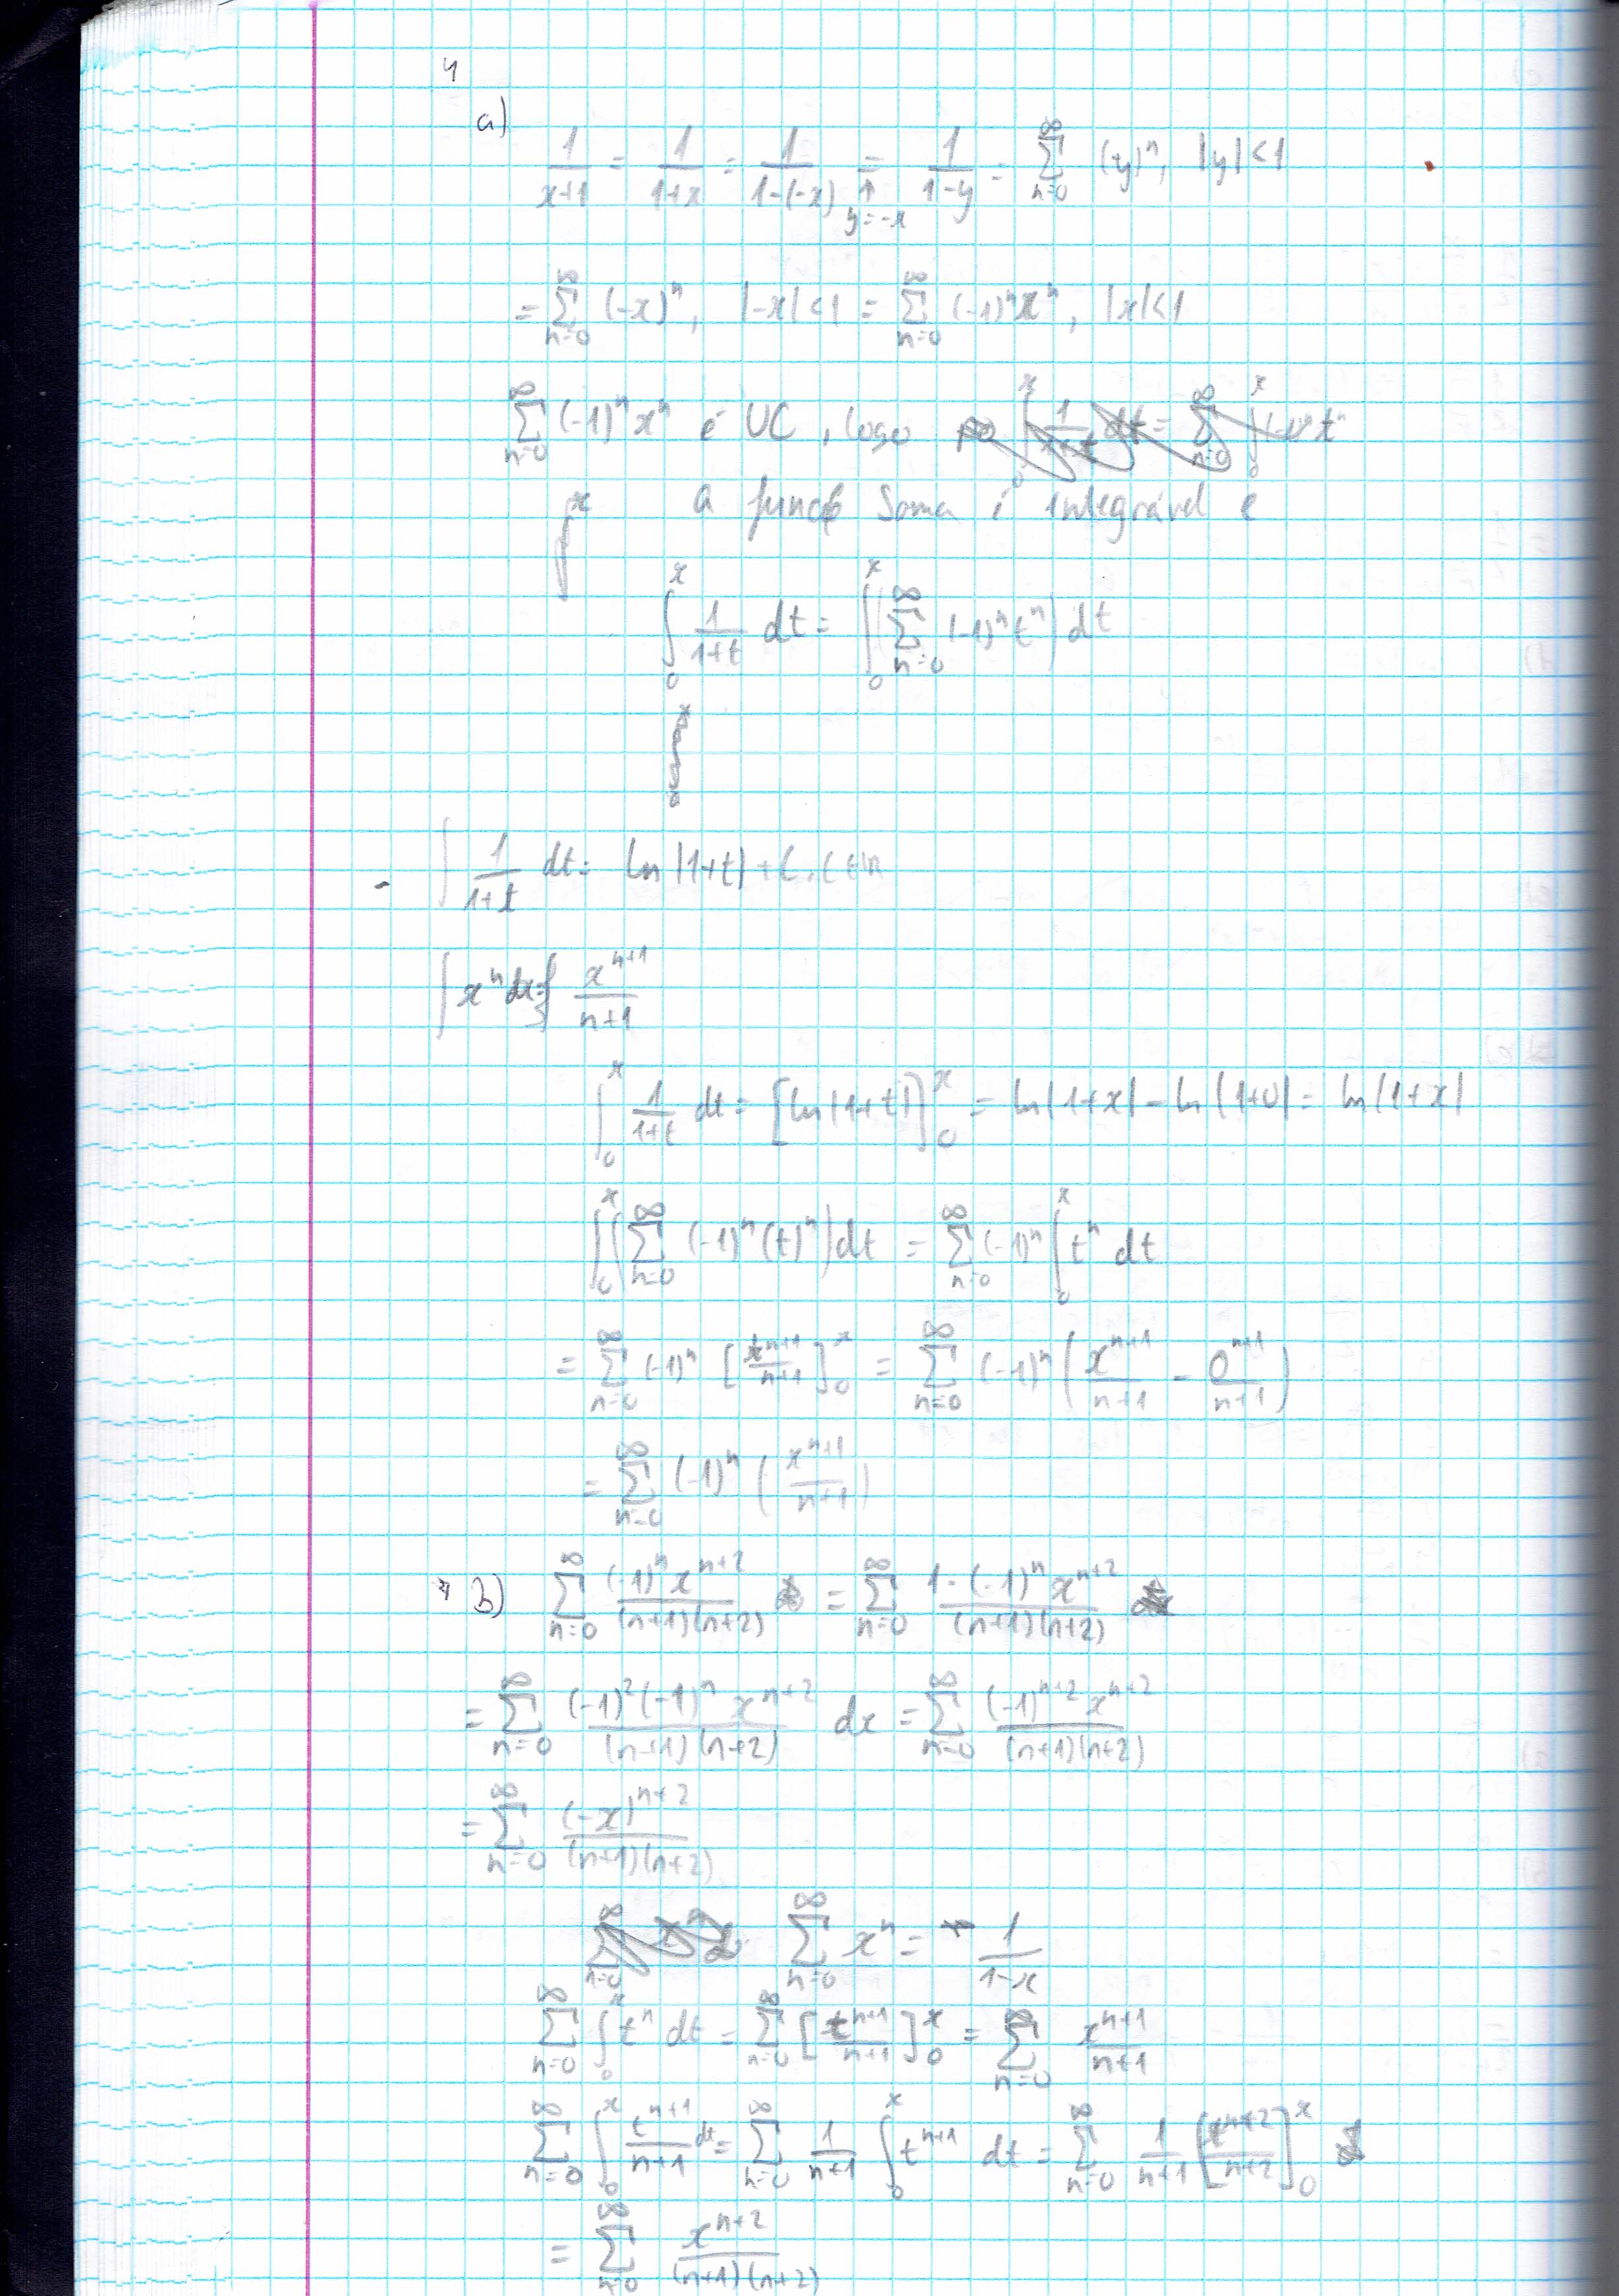 4
a)
1/(x+1) = 1/(1+x) = 1/(1-(-x)) =↑ y=-x 1/(1-y) = ∑_{n=0}^{∞} (y)^n, |y|<1
= ∑_{n=0}^{∞} (-x)^n, |-x|<1 = ∑_{n=0}^{∞} (-1)^n x^n, |x|<1
∑_{n=0}^{∞} (-1)^n x^n é UC, logo
a função soma é integrável e
∫_0^x 1/(1+t) dt = ∫_0^x (∑_{n=0}^{∞} (-1)^n t^n) dt
- ∫ 1/(1+t) dt = ln|1+t| + C, C∈ℝ
∫ x^n dx = x^{n+1}/(n+1)
∫_0^x 1/(1+t) dt = [ln|1+t|]_0^x = ln|1+x| - ln|1+0| = ln|1+x|
∫_0^x (∑_{n=0}^{∞} (-1)^n (t)^n) dt = ∑_{n=0}^{∞} (-1)^n ∫_0^x t^n dt
= ∑_{n=0}^{∞} (-1)^n [t^{n+1}/(n+1)]_0^x = ∑_{n=0}^{∞} (-1)^n (x^{n+1}/(n+1) - 0^{n+1}/(n+1))
= ∑_{n=0}^{∞} (-1)^n (x^{n+1}/(n+1))
4 b) ∑_{n=0}^{∞} (-1)^n x^{n+2}/((n+1)(n+2)) = ∑_{n=0}^{∞} 1·(-1)^n x^{n+2}/((n+1)(n+2))
= ∑_{n=0}^{∞} (-1)^2 (-1)^n x^{n+2}/((n+1)(n+2)) dx = ∑_{n=0}^{∞} (-1)^{n+2} x^{n+2}/((n+1)(n+2))
= ∑_{n=0}^{∞} (-x)^{n+2}/((n+1)(n+2))
∑_{n=0}^{∞} x^n = 1/(1-x)
∑_{n=0}^{∞} ∫_0^x t^n dt = ∑_{n=0}^{∞} [t^{n+1}/(n+1)]_0^x = ∑_{n=0}^{∞} x^{n+1}/(n+1)
∑_{n=0}^{∞} ∫_0^x t^{n+1}/(n+1) dt = ∑_{n=0}^{∞} 1/(n+1) ∫_0^x t^{n+1} dt = ∑_{n=0}^{∞} 1/(n+1) [t^{n+2}/(n+2)]_0^x
= ∑_{n=0}^{∞} x^{n+2}/((n+1)(n+2))